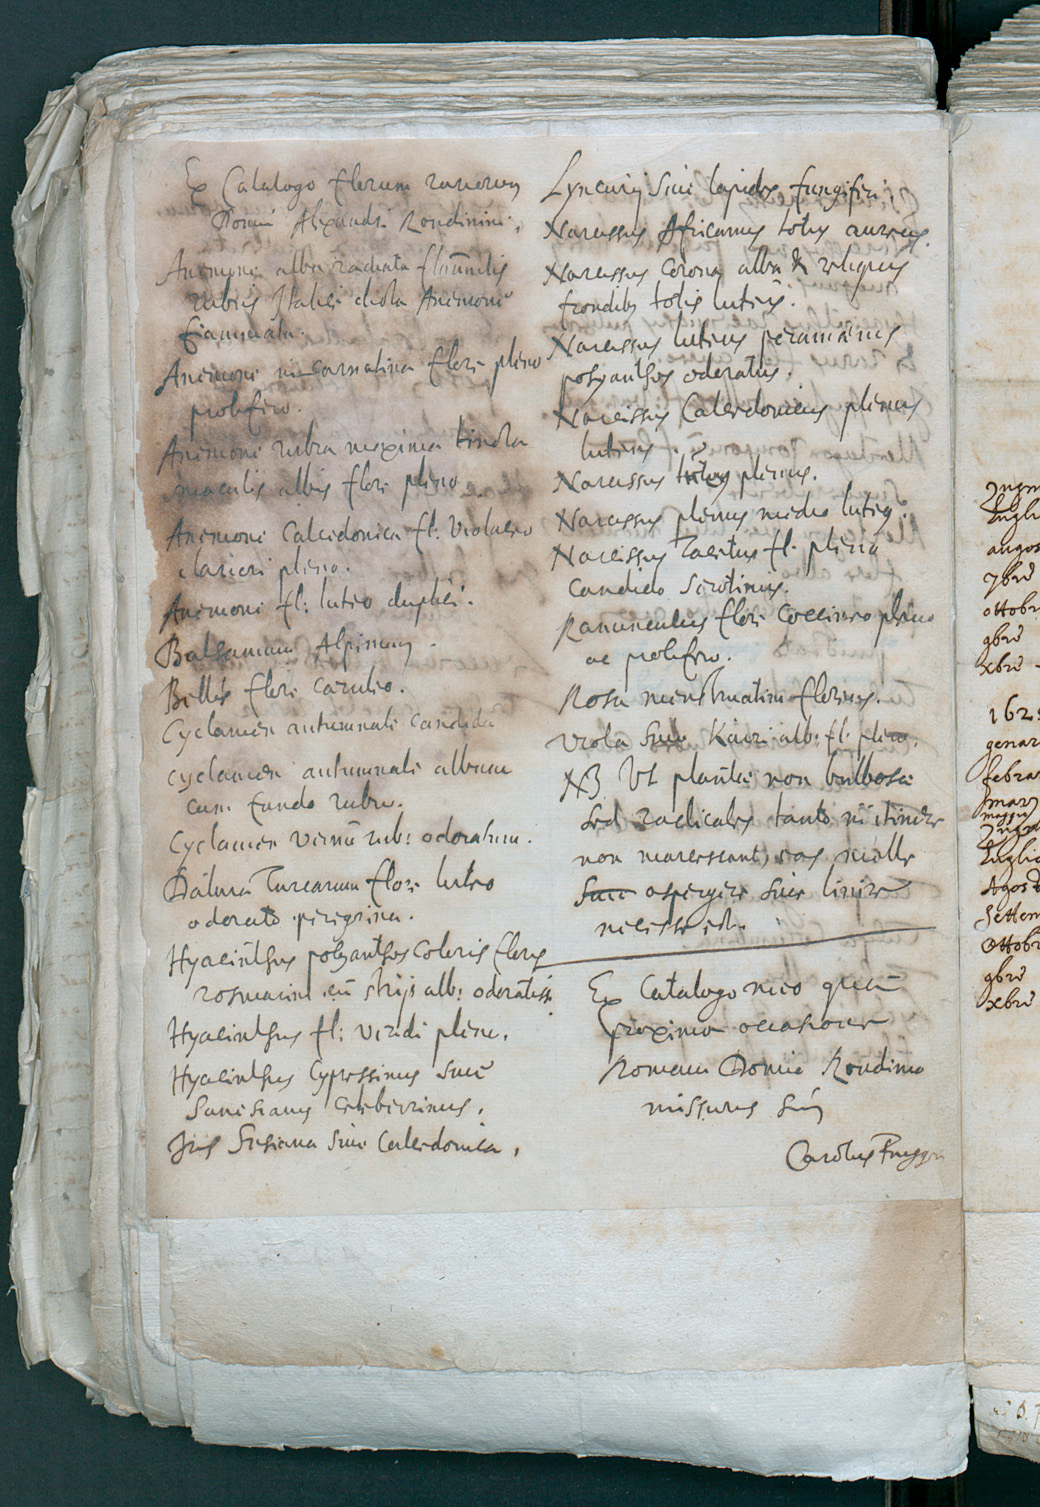 Ex Catalogo florum rariorum
Domini Alexandri Rondinini,
Anemone alba radiata flam̄ulis
rubris Italicè dicta Anemone
fiammata.
Anemone incarnatina flore pleno
prolifero.
Anemone rubra maxima tincta
maculis albis flore pleno
Anemone Calcedonica fl: violaceo
clariori pleno.
Anemone fl: luteo duplici.
Balsamum Alpinum.
Bellis flore caruleo.
Cyclamen autumnale candidū
Cyclamen autumnale album
cum fundo rubro.
Cyclamen vernū rub: odoratum.
Datura Turcarum flore luteo
odorato peregrina.
Hyacinthus polyanthos coloris floris
rosmarini cū strijs alb: odoratiss:
Hyacinthus fl: viridi pleno.
Hyacinthus Cypressinus sive
celeberrimus.
Iris Susiana sive Calcedonica,
Lyncurij sive lapides fungiferi
Narcissus Africanus totus aureus.
Narcissus corona alba & reliquis
frondibs totis luteis.
Narcissus luteus peramænus
polyanthos odoratus.
Narcissus Calcedonicus plenus
luteus.
Narcissus totus plenus.
Narcissus plenus medio luteus.
Narcissus Tacetus fl. pleno
candido serotinus.
Ranunculus flore coccineo pleno
ac prolifero.
Rosa menstruatim florens.
Viola sive Kairi alb: fl: pleno.
NB Vt plantæ non bulbosæ
sed radicales tanto in itinere
non marcescant, eas melle
aspergere sive linire
necesse est.
Ex Catalogo meo quem
proxima occasione
Romam Domino Rondinino
missurus sum
Carolus Fugger
angos
7bre
ottobr
9bre
xbre
162
genar
febra
marz
maggio
luglio
Agost
Settem
Ottobr
9bre
xbre